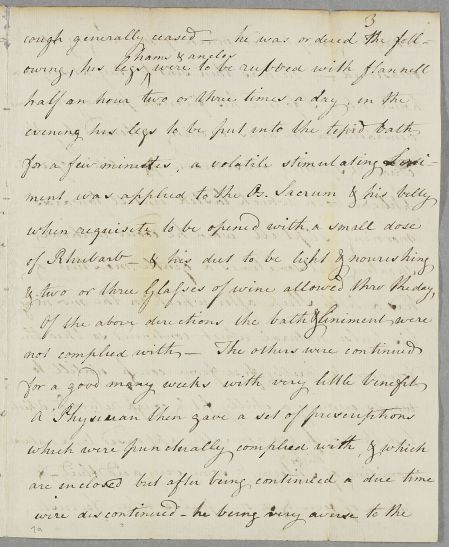 3
cough generally ceased – he was ordered the foll-
owing, his legs were to be rubbed with flannell
hams & ancles
half an hour two or three times a day, in the
evening his legs to be put into the tepid bath
for a few minutes, a volatile stimulating Lini-
ment was applied to the Os. Sacrum & his belly
when requisite to be opened with a small dose
of Rhubarb – & his diet to be light & nourishing
& two or three Glasses of wine allowed thro the day,
Of the above directions the bath & linement were
not complied with – The others were continued
for a good many weeks with very little benefit
A Physician then gave a set of prescriptions
which were punctually complied with, & which
are enclosed but after being continued a due time
were discontinued – he being very averse to the